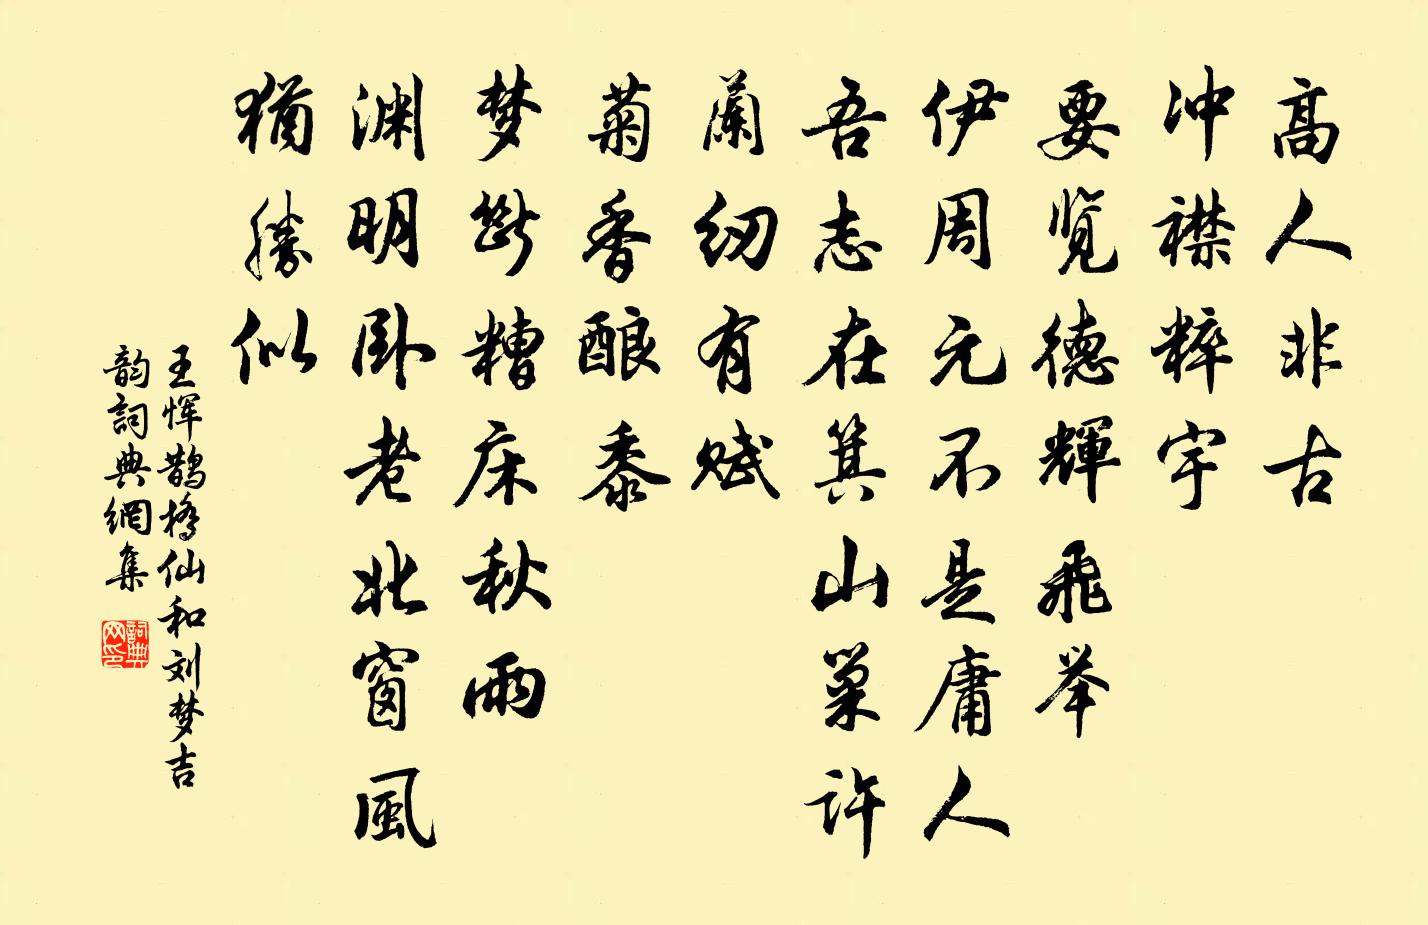 高人非古
冲襟粹宇
要览德輝飛举
伊周元不是庸人
吾志在箕山巢許
蘭纫有赋
菊香酿黍
梦断糟床秋雨
渊明卧老北窗風
猶勝似
王恽鹊橋仙和刘梦吉
韵詞典網集
詞典
网印